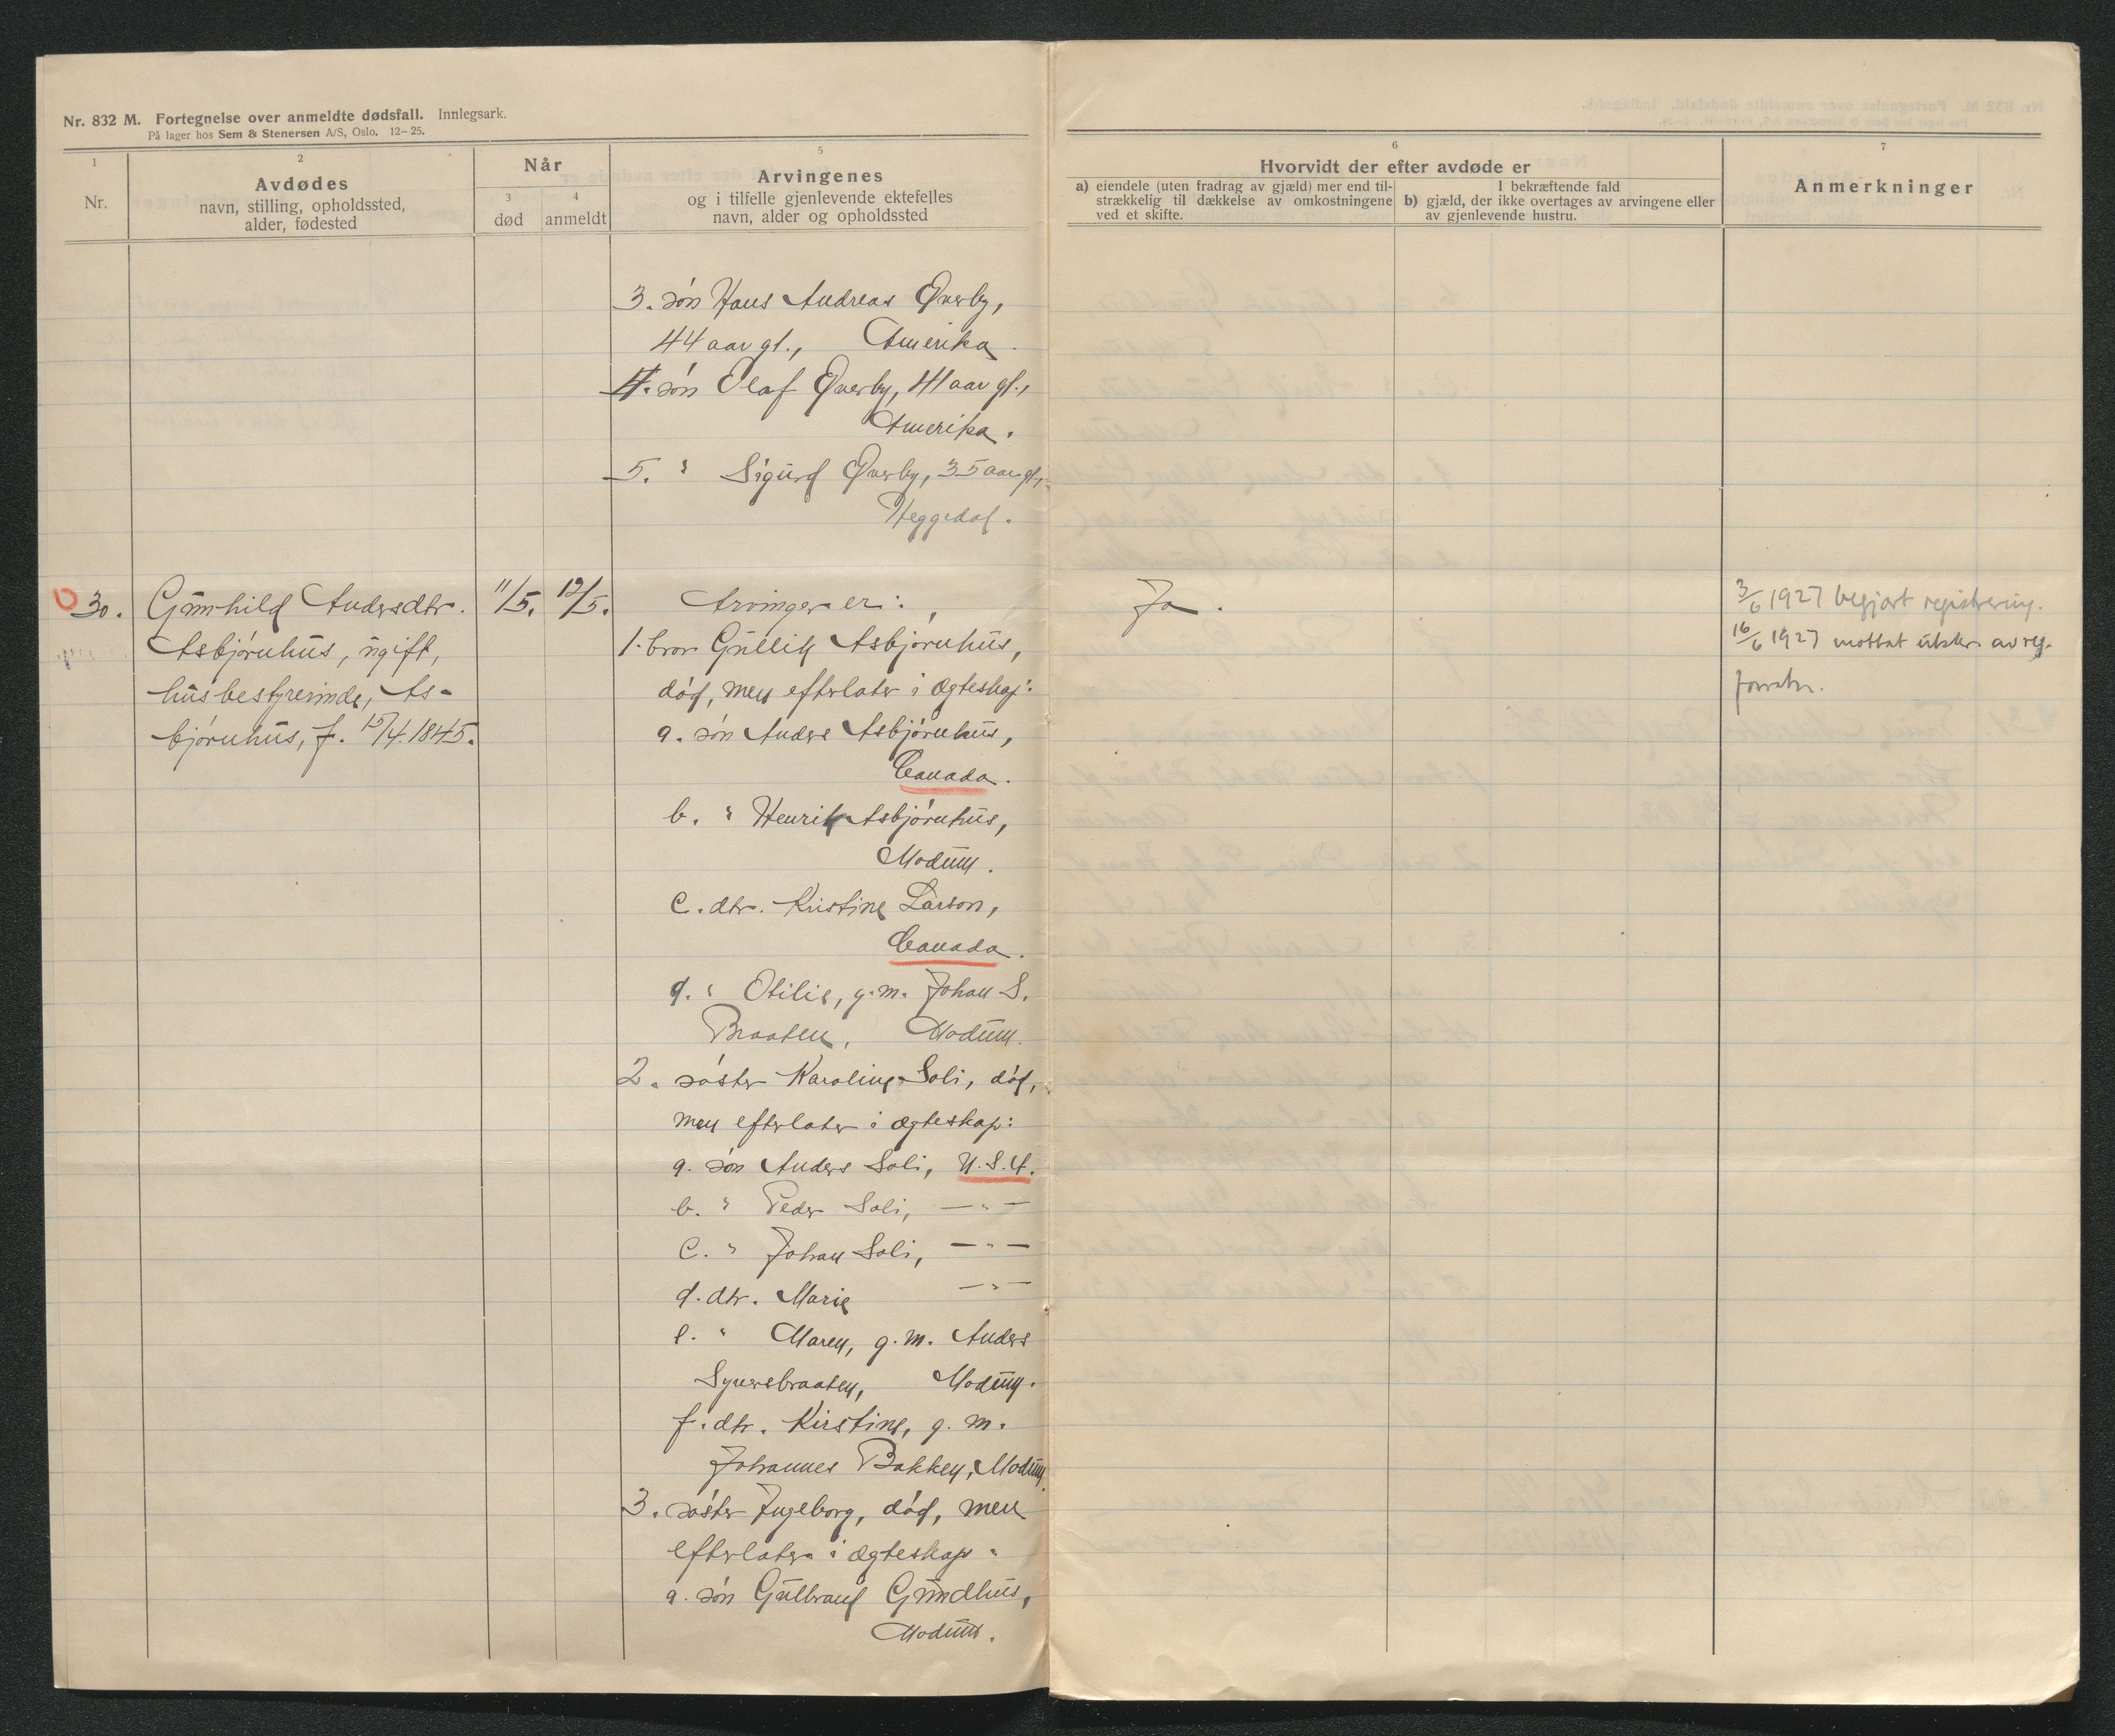 Nr. 832 M. Fortegnelse over anmeldte dødsfall. Innlegsark.
På lager hos Sem & Stenersen A/S, Oslo. 12-25.
1
Nr.
2
Avdødes
navn, stilling, opholdssted,
alder, fødested
Når
3
død
4
anmeldt
5
Arvingenes
og i tilfelle gjenlevende ektefelles
navn, alder og opholdssted
6
Hvorvidt der efter avdøde er
a) eiendele (uten fradrag av gjæld) mer end til-
strækkelig til dækkelse av omkostningene
ved et skifte.
I bekræftende fald
b) gjæld, der ikke overtages av arvingene eller
av gjenlevende hustru.
7
Anmerkninger
3. søn Hans Andreas Øverby,
44 aar gl., Amerika.
4. søn Olaf Øverby, 41 aar gl.,
Amerika.
5. " Sigurd Øverby, 35 aar gl.,
Heggedal.
30.
Gunhild Andersdtr.
Asbjørnhus, ugift,
husbestyrerinde, As-
bjørnhus, f. 15/4.1845.
11/5.
12/5.
Arvinger er:
1. bror Gullik Asbjørnhus,
død, men efterlater i ægteskap:
a. søn Anders Asbjørnhus,
Canada.
b. " Henrik Asbjørnhus,
Modum.
c. dtr. Kristine Larson,
Canada.
d. " Otilie, g.m. Johan S.
Braaten, Modum.
2. søster Karoline Soli, død,
men efterlater i ægteskap:
a. søn Anders Soli, U.S.A.
b. " Peder Soli, — " —
c. " Johan Soli, — " —
d. dtr. Marie — " —
e. " Maren, g.m. Anders
Syversbraaten, Modum.
f. dtr. Kirstine, g.m.
Johannes Bakken, Modum.
3. søster Ingeborg, død, men
efterlater i ægteskap:
a. søn Gulbrand Gundhus,
Modum.
Ja.
3/6 1927 begjært registrering.
16/6 1927 mottat utskr. av reg.
forretn.